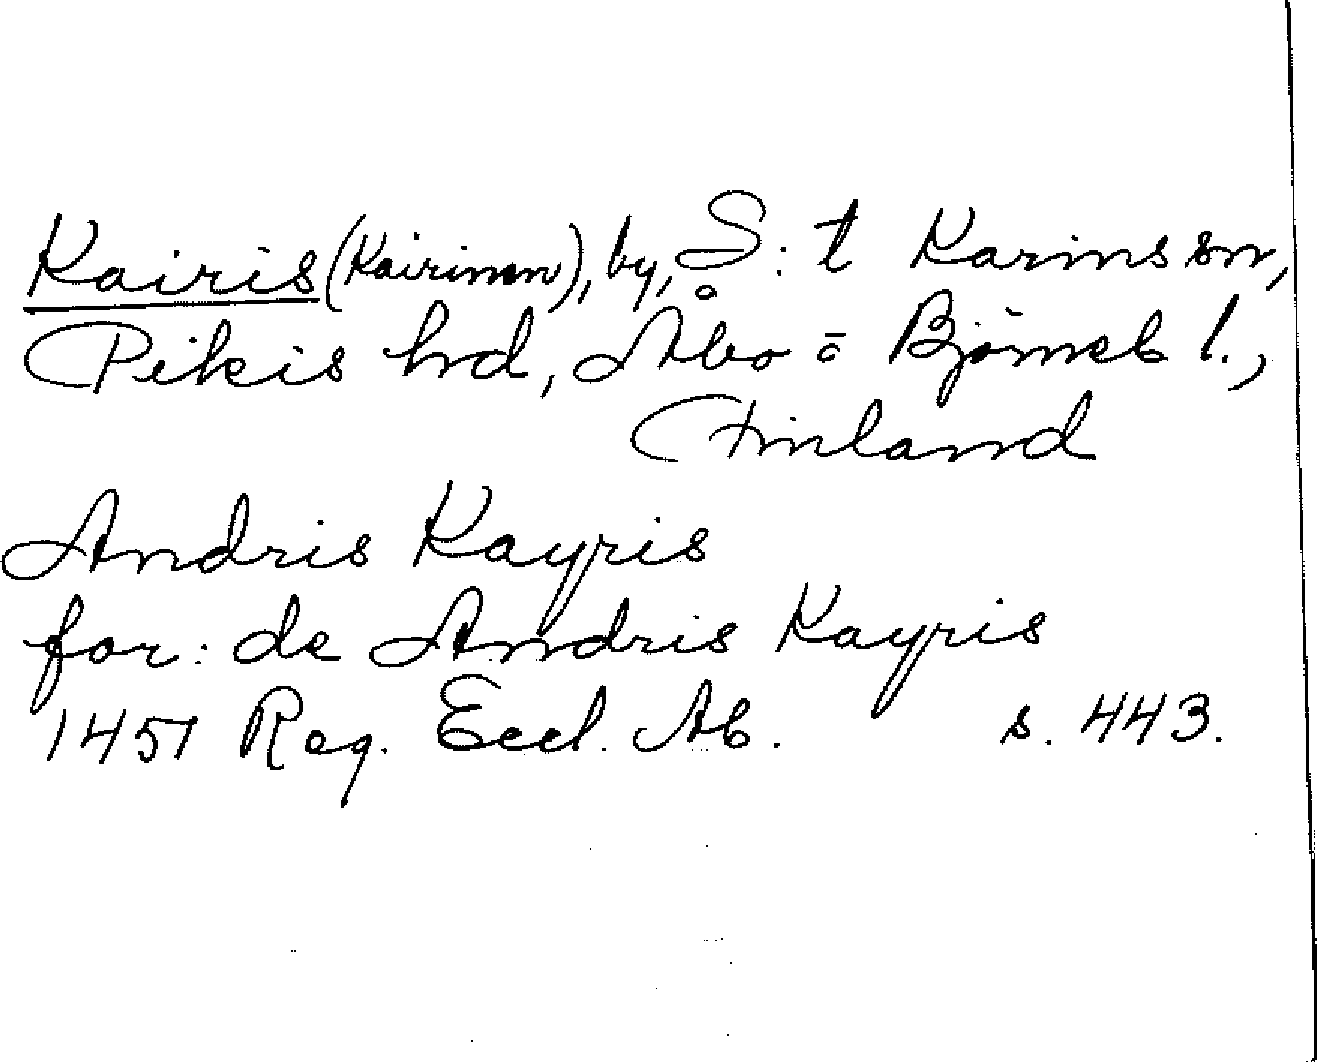 Kairis (Kairinen), by, S:t Karins sn,
Pikis hd, Åbo = Björneb l.,
Finland
Andris Kayris
for: de Andris Kayris
1451 Reg. Eccl. Ab. s. 443.